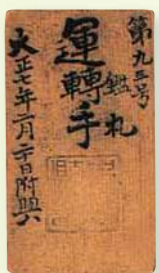 第九三号
運轉手
鑑札
大正七年二月二十日附與